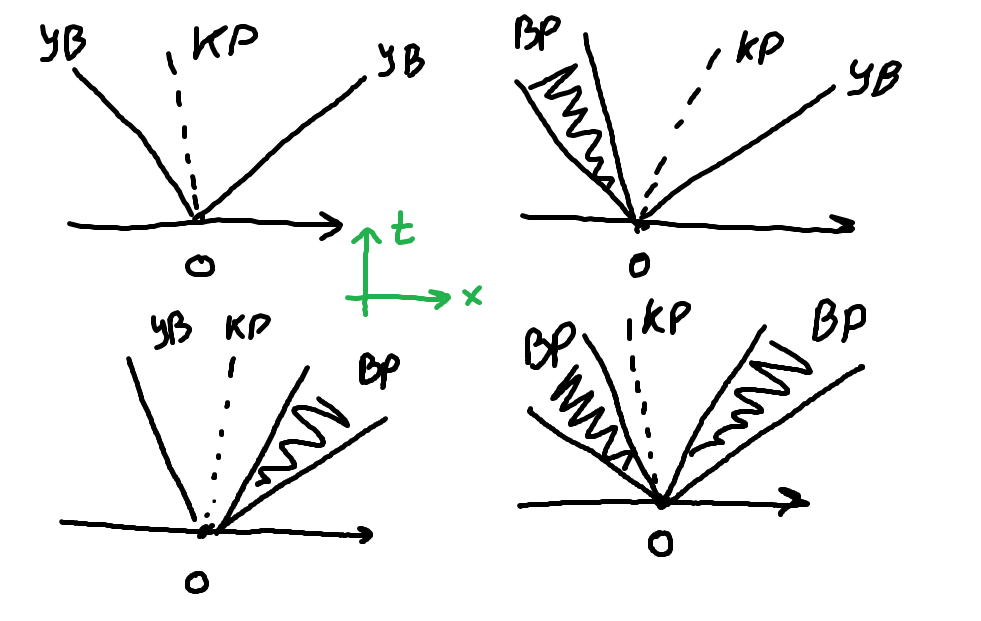 УВ КР УВ
ВР КР УВ
0
t
0
x
УВ КР ВР
ВР КР ВР
0
0